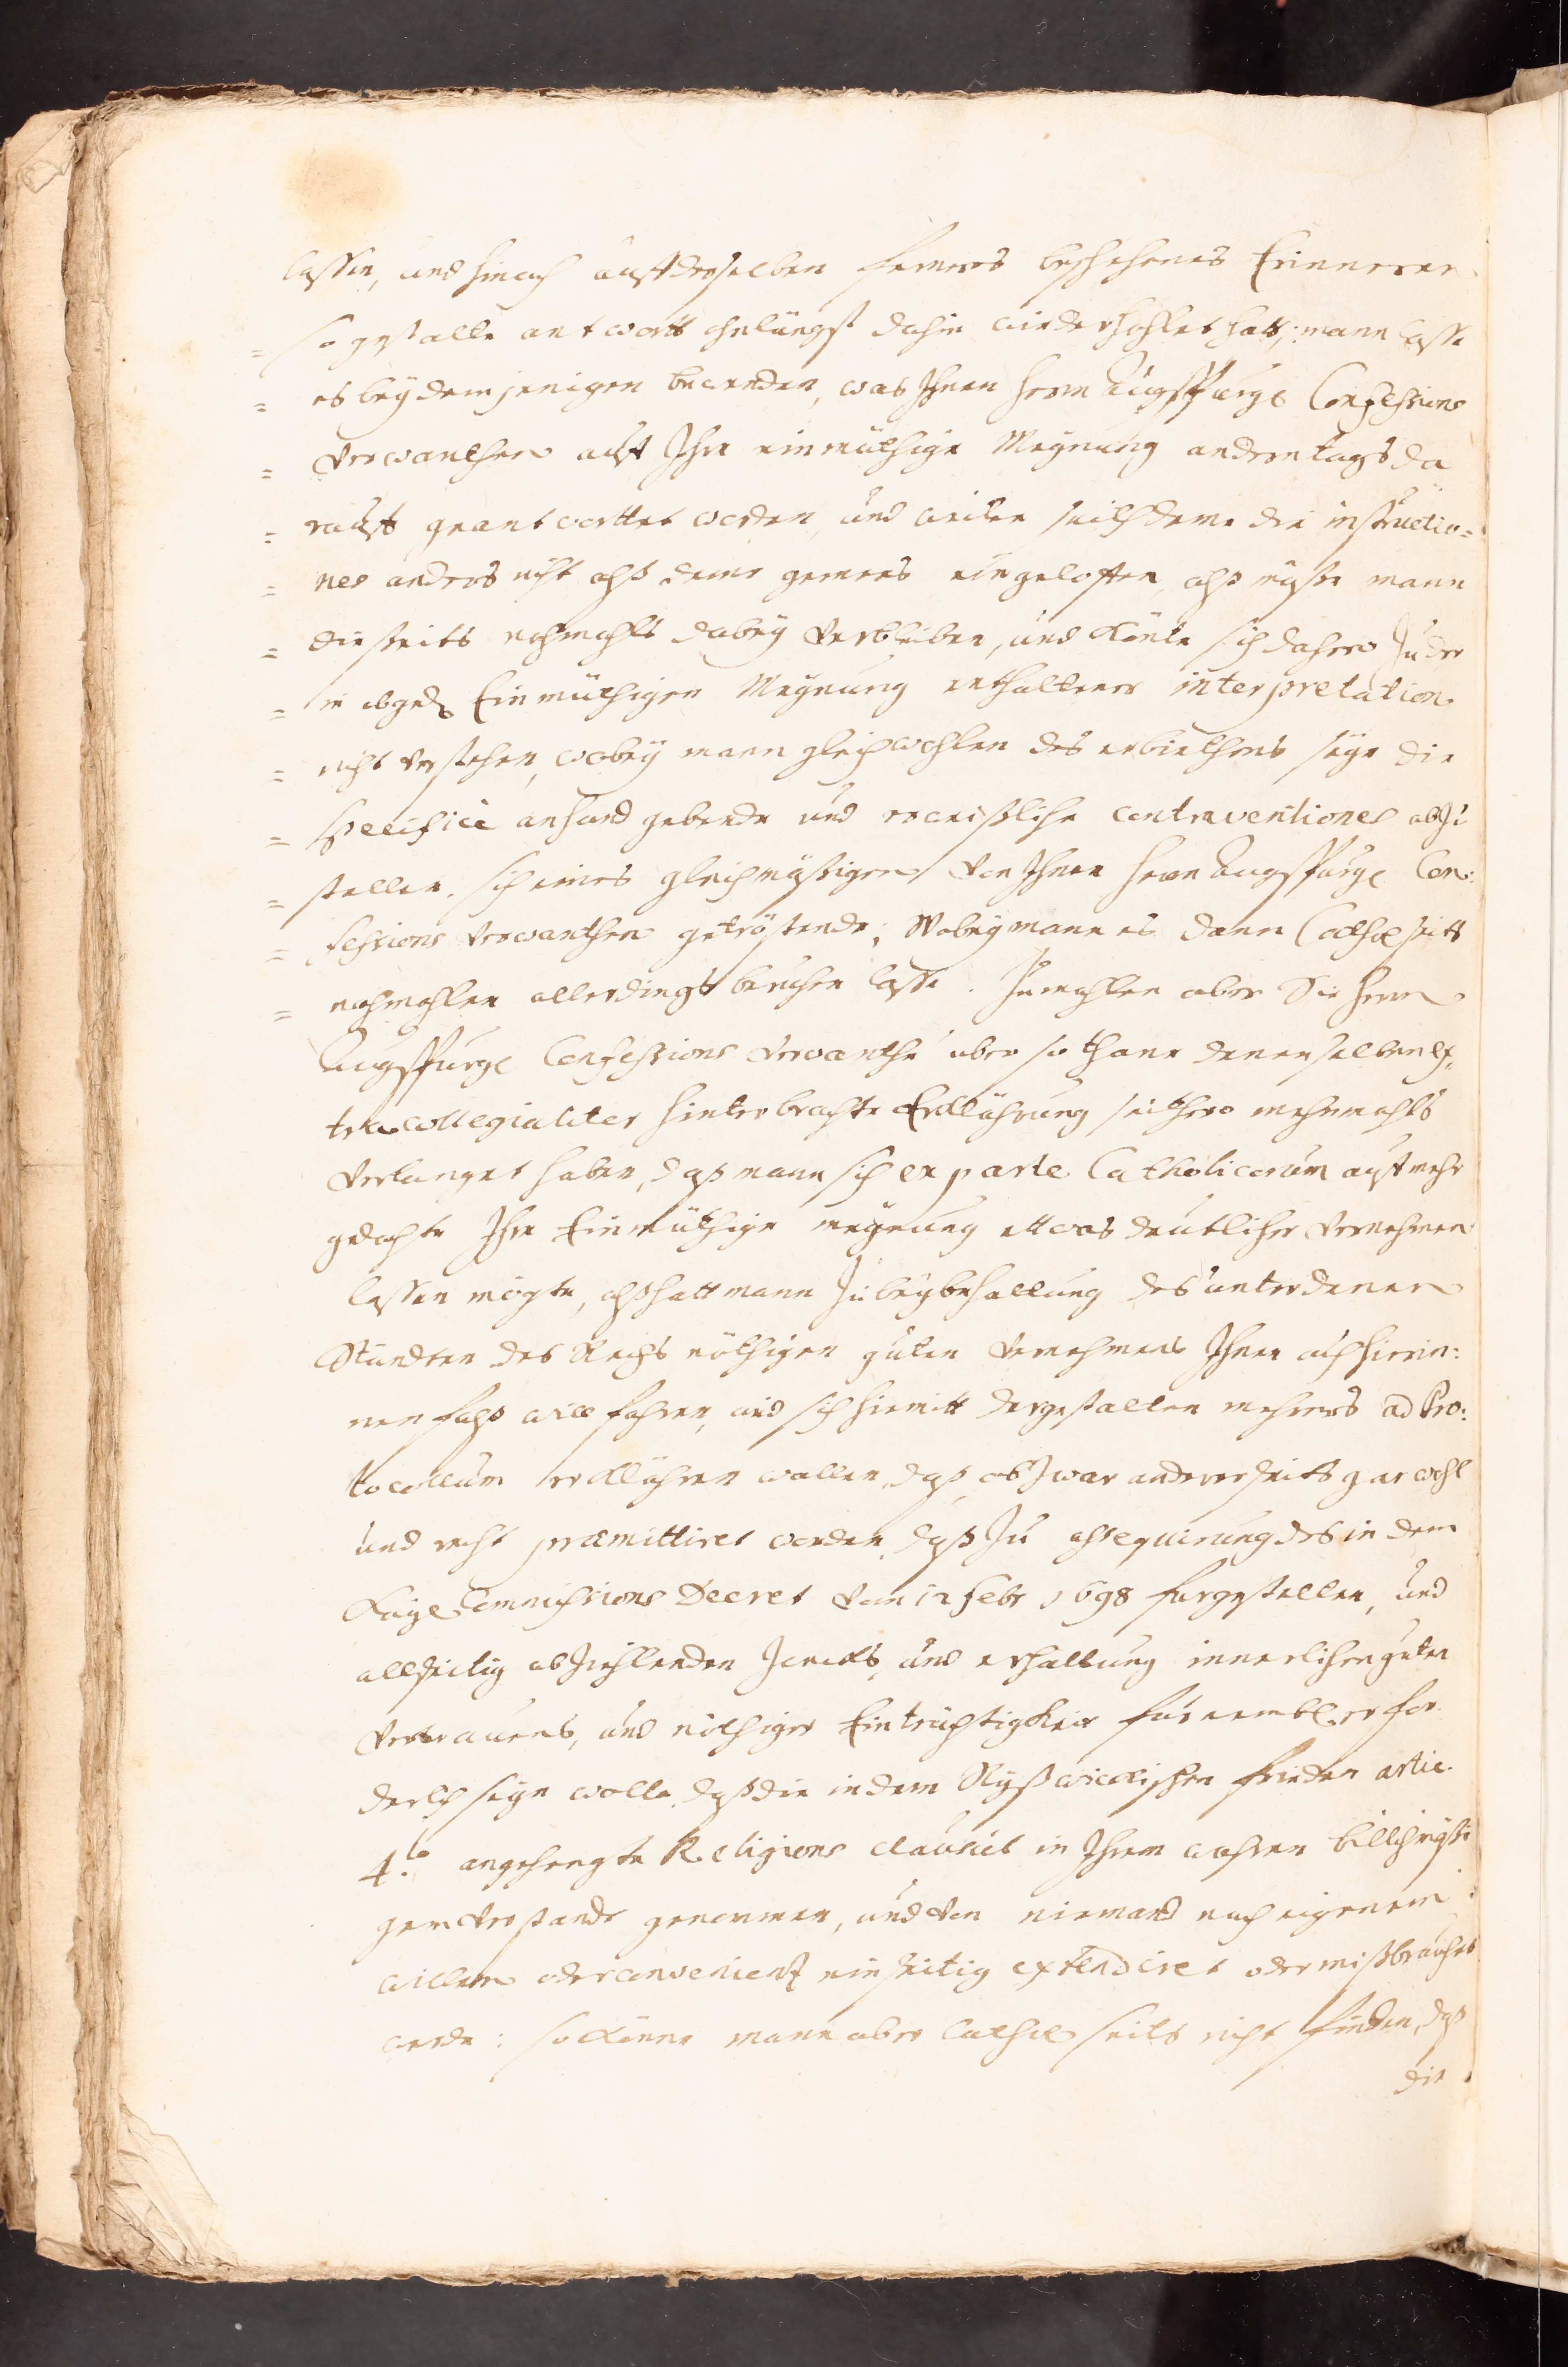 lassen, und hinach auff derselben ferners beschehenes Erinneren
= so gestalte antwortt ohnlängst dahin widerhohlet hatt; mann lasse
= es bey demjenigen bewenden, was Ihnen herrn Augspurg. Confessions
= Verwanthen auff Ihre einmüthige Meynung anderntags da
= rauff geantworttet worden, und weilen seithdeme die instructio=
= nes anders nicht alß deme gemees eingeloffen, alß müsse mann
= diesseits nochmahls dabey verbleiben, und könte sich dahero zu der
= in obged. Einmüthigen Meynung enthaltener interpretation
= nicht verstehen, wobey mann gleichwohlen des erbiethens seye die
= specificè anhand gebende und erweißliche contraventiones abzu
= stellen, sich eines gleichmässigen von Ihnen herrn Augspurg. Con:
= fessions Verwanthen getröstende; Wobey mann es dann Cathol. seits
= nochmahlen allerdings beruhen lasse. Zumahlen aber die herrn
Augspurg. Confessions Verwanthe über sothane denenselben ex=
tra collegialiter hinterbrachte Erklährung seithero mehrmahls
verlanget haben, daß mann sich ex parte Catholicorum auff mehr
gedachte Ihre Einmüthige meynung ettwas deutlicher vernehmen
lassen mögte, alß hatt mann zu beybehaltung des unter denen
Ständten des Reichs nöthigen guten vernehmens Ihnen auch hierin:
nenfalß willfahren, und sich hiemitt dergestalten mehrers ad Pro:
tocollum erklähren wollen, daß, ob zwar anderer seits gar wohl
und recht præmittiret worden, daß zu assequirung des in dem
Kayl. Commissions Decret vom 12 Febr 1698 furgestelten, und
allseitig abziehlenden zwecks, und erhaltung innerlichen guten
vertrauens, und nöthiger Einträchtigkeit fürnembl. erfor
derlich seyn wolle, daß die in dem Rysswickischen frieden artic.
4.to angehengte Religions clausul in Ihrem wahren billichmässi
gem verstande genommen, und von niemand nach eigenem
willen oder convenienz einseitig extendiret oder mißbrauchet
werde: so könne mann aber Cathol. seits nicht finden, daß
die